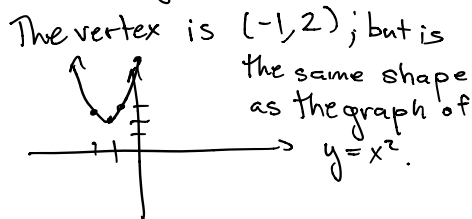 The vertex is (-1,2); but is
the same shape
as the graph of
y=x².